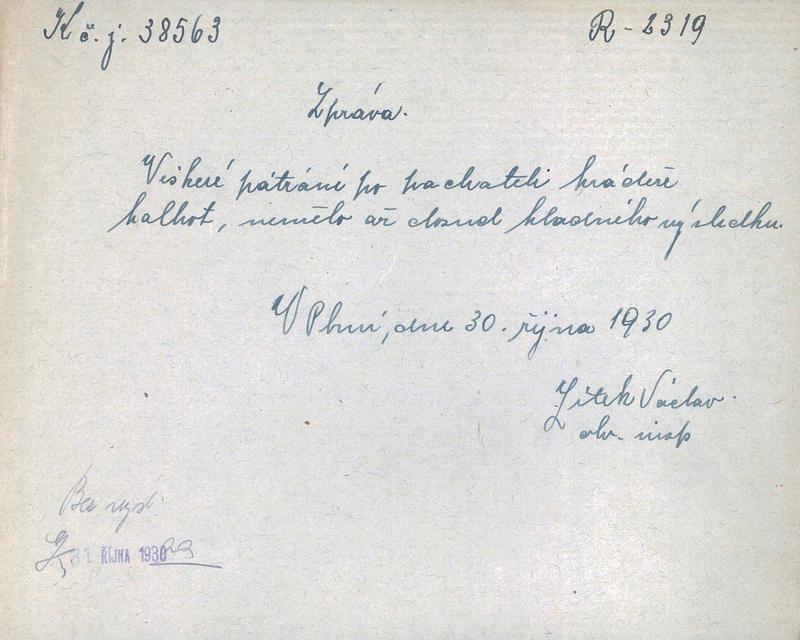 K č. j. 38563
R - 2319
Zpráva.
Veškeré pátrání po pachateli krádeže
kalhot, nemělo až dosud kladného výsledku.
V Plzni, dne 30. října 1930
Zítek Václav.
obv. insp
Bez výsl.
31 ŘÍJNA 1930